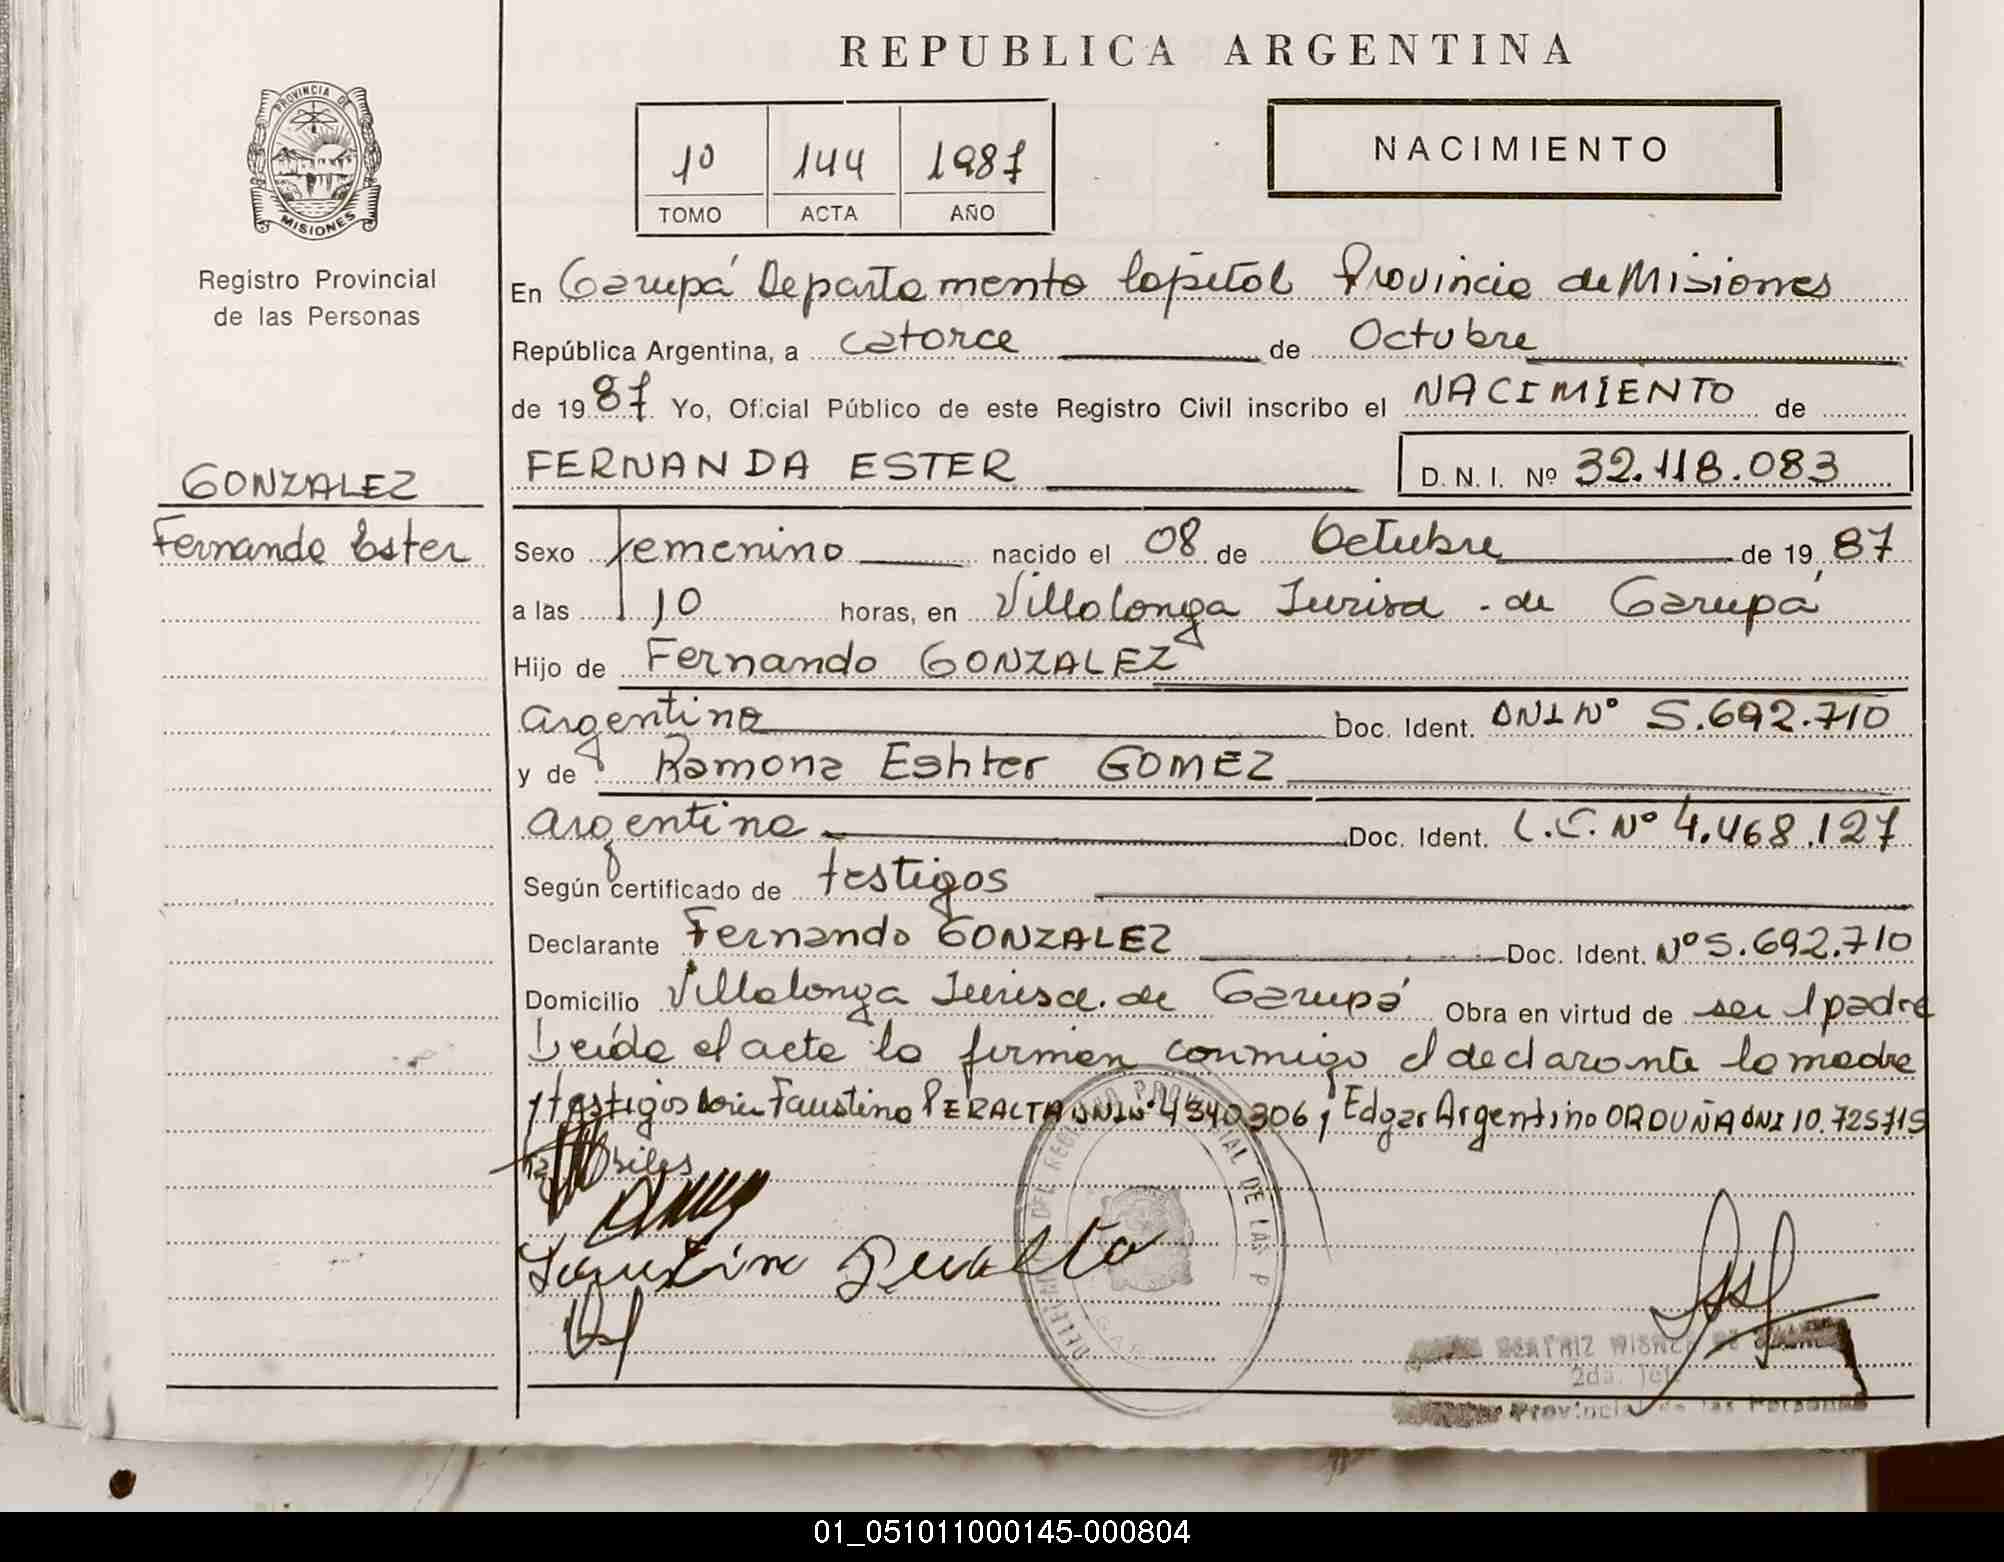 REPUBLICA ARGENTINA
PROVINCIA DE
MISIONES
Registro Provincial
de las Personas
1º 144 1987
TOMO ACTA AÑO
NACIMIENTO
En Garupá Departamento Capital Provincia de Misiones
República Argentina, a catorce de Octubre
de 1987. Yo, Oficial Público de este Registro Civil inscribo el NACIMIENTO de
FERNANDA ESTER D. N. I. Nº 32.118.083
GONZALEZ
Fernanda Ester
Sexo femenino nacido el 08 de Octubre de 1987
a las 10 horas, en Villalonga Jurisd. de Garupá
Hijo de Fernando GONZALEZ
argentino Doc. Ident. DNI Nº 5.692.710
y de Ramona Eshter GOMEZ
argentina Doc. Ident. L.C. Nº 4.468.127
Según certificado de testigos
Declarante Fernando GONZALEZ Doc. Ident. Nº 5.692.710
Domicilio Villalonga Jurisd. de Garupá Obra en virtud de ser el padre
Leída el acta la firman conmigo el declarante la madre
y testigos Faustino PERALTA DNI Nº 4340306 y Edgar Argentino ORDUÑA DNI 10.725715
habiles
Faustino Peralta
DEL REGISTRO PROVINCIAL DE LAS P
BEATRIZ
2da. Jefe
Provincial de las Personas
01_051011000145-000804